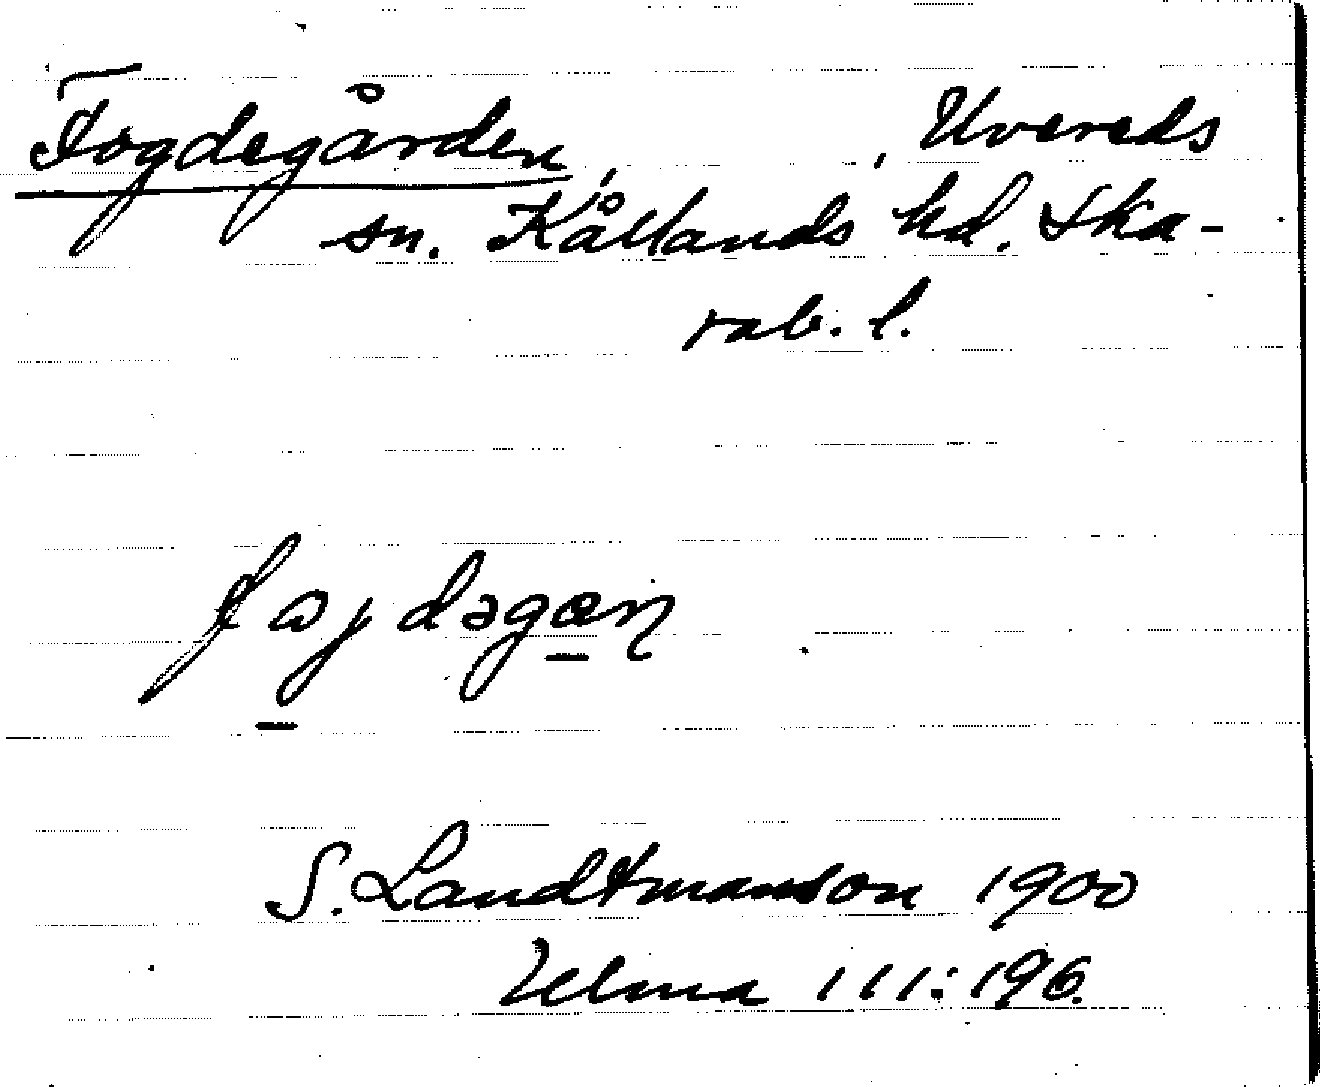 Fogdegården, , Uvereds
sn. Kållands hd. Ska-
rab. l.
fajdəgæn
S. Landtmanson 1900
Ulma 111:196.